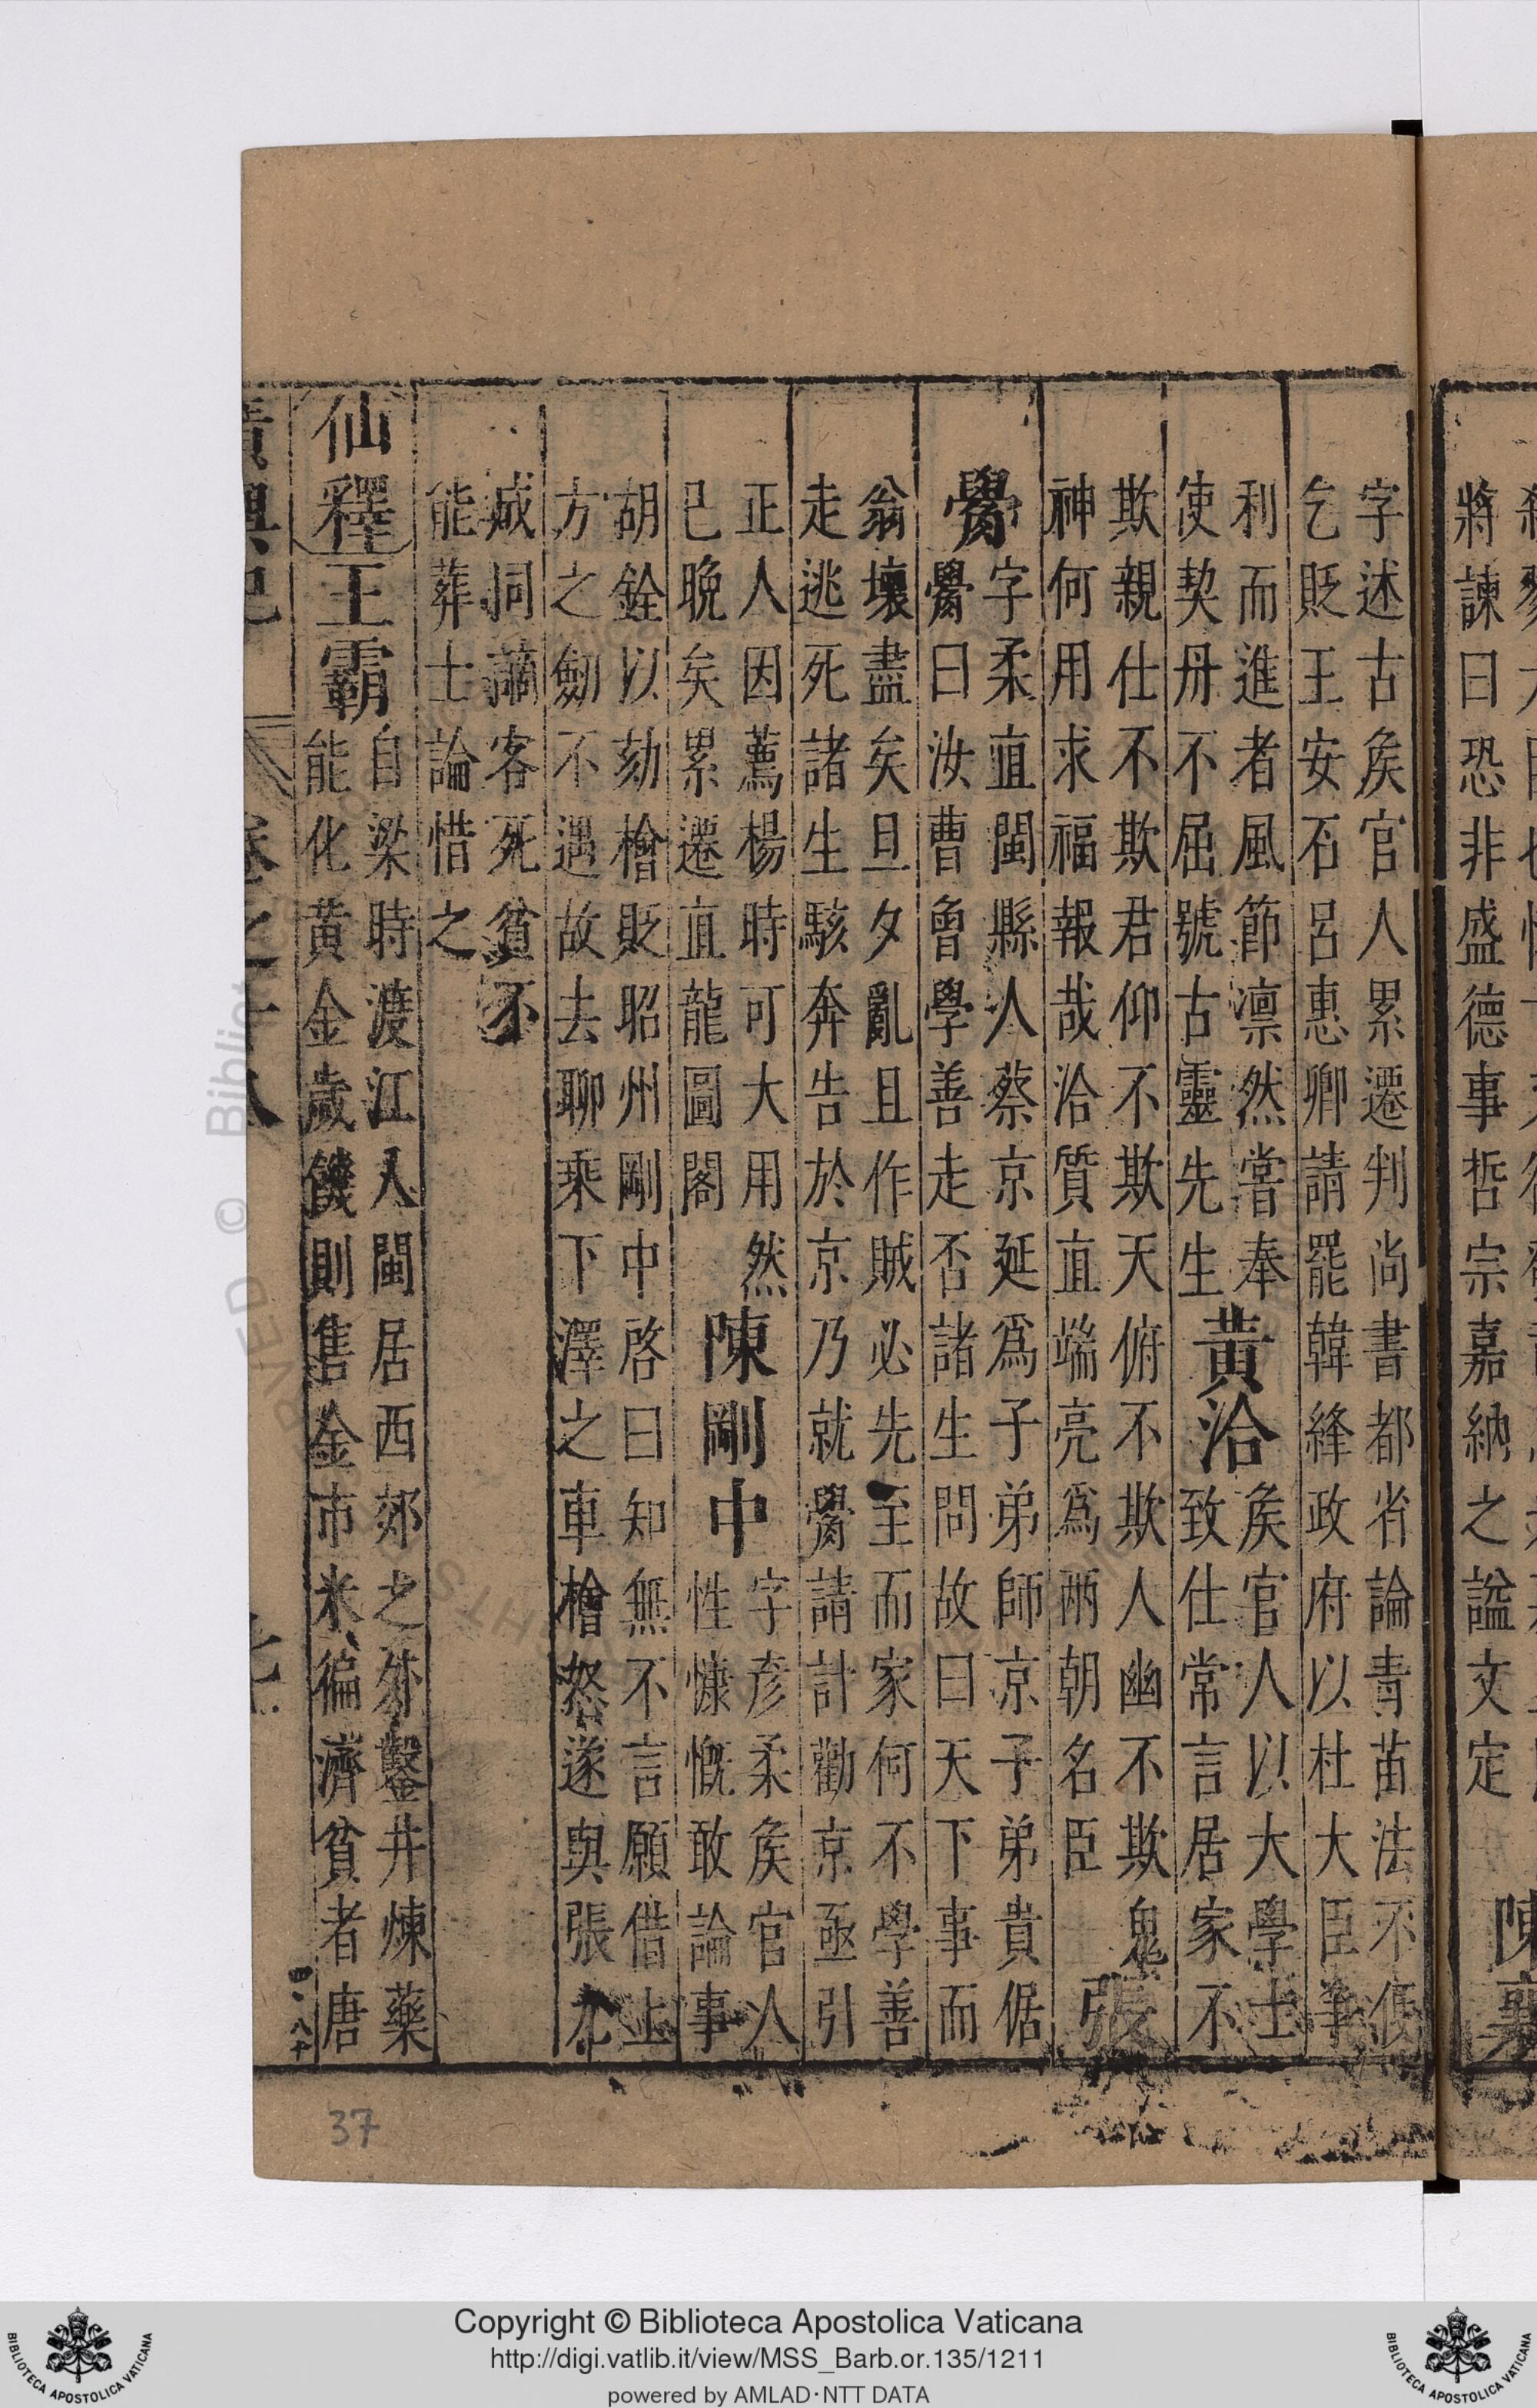 將諫曰恐非盛德事哲宗嘉納之諡文定
陳襄
字述古矦官人累遷判尚書都省論青苗法不便
乞貶王安石呂惠卿請罷韓絳政府以杜大臣筆
利而進者風節凛然嘗奉
使契丹不屈號古靈先生
黃洽
矦官人以大學士
致仕常言居家不
欺親仕不欺君仰不欺天俯不欺人幽不欺鬼
神何用求福報哉洽質直端亮爲兩朝名臣
張
觷
字柔直閩縣人蔡京延爲子弟師京子弟貴倨
觷曰汝曹曾學善走否諸生問故曰天下事而
翁壞盡矣旦夕亂且作賊必先至而家何不學善
走逃死諸生駭奔告於京乃就觷請計勸京亟引
正人因薦楊時可大用然
已晚矣累遷直龍圖閣
陳剛中
字彥柔矦官人
性慷慨敢論事
胡銓以劾檜貶昭州剛中啓曰知無不言願借上
方之劒不遇故去聊乘下澤之車檜怒遂與張九
成同謫客死貧不
能葬士論惜之
仙釋
王霸
自梁時渡江入閩居西郊之外鑿井煉藥
能化黃金歲饑則售金市米徧濟貧者唐
卷之十八
37
Copyright © Biblioteca Apostolica Vaticana
http://digi.vatlib.it/view/MSS_Barb.or.135/1211
powered by AMLAD·NTT DATA
BIBLIOTECA APOSTOLICA VATICANA
BIBLIOTECA APOSTOLICA VATICANA